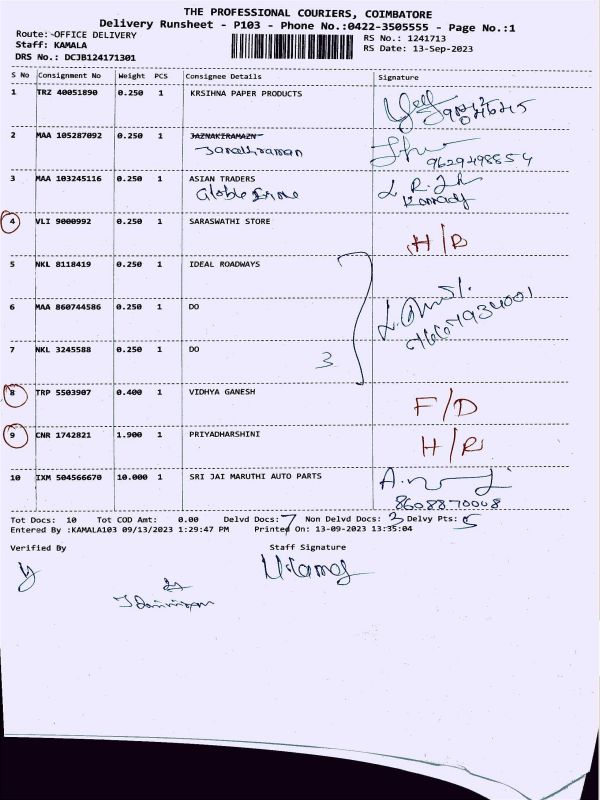 THE PROFESSIONAL COURIERS, COIMBATORE
Delivery Runsheet - P103 - Phone No.:0422-3505555 - Page No.:1
Route: OFFICE DELIVERY RS No.: 1241713
Staff: KAMALA RS Date: 13-Sep-2023
DRS No.: DCJB124171301
S No Consignment No Weight PCS Consignee Details Signature
1 TRZ 40051890 0.250 1 KRSIHNA PAPER PRODUCTS
2 MAA 105287092 0.250 1 JAZNAKIRAMAZN
9629498854
3 MAA 103245116 0.250 1 ASIAN TRADERS
Globle
4 VLI 9000992 0.250 1 SARASWATHI STORE
H/R
5 NKL 8118419 0.250 1 IDEAL ROADWAYS
6 MAA 860744586 0.250 1 DO
7 NKL 3245588 0.250 1 DO
3
8 TRP 5503907 0.400 1 VIDHYA GANESH
F/D
9 CNR 1742821 1.900 1 PRIYADHARSHINI
H/R
10 IXM 504566670 10.000 1 SRI JAI MARUTHI AUTO PARTS
8608870008
Tot Docs: 10 Tot COD Amt: 0.00 Delvd Docs: 7 Non Delvd Docs: 3 Delvy Pts: 5
Entered By :KAMALA103 09/13/2023 1:29:47 PM Printed On: 13-09-2023 13:35:04
Verified By Staff Signature